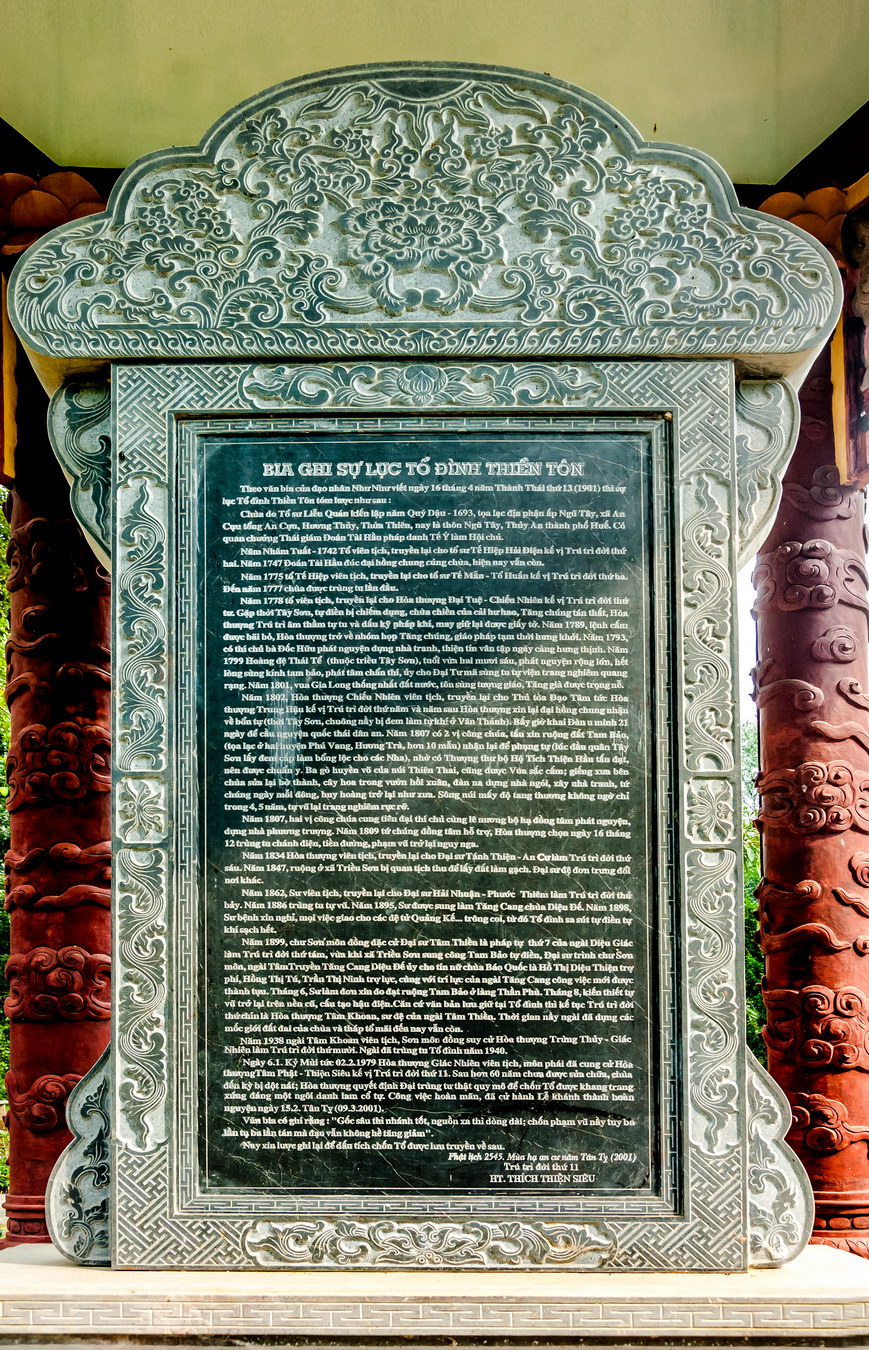 BIA GHI SỰ LỤC TỔ ĐÌNH THIỀN TÔN
Theo văn bia của đạo nhân Như Như viết ngày 16 tháng 4 năm Thành Thái thứ 13 (1901) thì sự
lục Tổ đình Thiền Tôn tóm lược như sau :
Chùa do Tổ sư Liễu Quán kiến lập năm Quý Dậu - 1693, tọa lạc địa phận ấp Ngũ Tây, xã An
Cựu tổng An Cựu, Hương Thủy, Thừa Thiên, nay là thôn Ngũ Tây, Thủy An thành phố Huế. Có
quan chưởng Thái giám Đoán Tài Hầu pháp danh Tế Ý làm Hội chủ.
Năm Nhâm Tuất - 1742 Tổ viên tịch, truyền lại cho tổ sư Tế Hiệp Hải Điện kế vị Trú trì đời thứ
hai. Năm 1747 Đoán Tài Hầu đúc đại hồng chung cúng chùa, hiện nay vẫn còn.
Năm 1775 tổ Tế Hiệp viên tịch, truyền lại cho tổ sư Tế Mẫn - Tổ Huấn kế vị Trú trì đời thứ ba.
Đến năm 1777 chùa được trùng tu lần đầu.
Năm 1778 tổ viên tịch, truyền lại cho Hòa thượng Đại Tuệ - Chiếu Nhiên kế vị Trú trì đời thứ
tư. Gặp thời Tây Sơn, tự điền bị chiếm dụng, chùa chiền của cải hư hao, Tăng chúng tán thất, Hòa
thượng Trú trì âm thầm tự tu và dấu kỹ pháp khí, may giữ lại được giấy tờ. Năm 1789, lệnh cấm
được bãi bỏ, Hòa thượng trở về nhóm họp Tăng chúng, giáo pháp tạm thời hưng khởi. Năm 1793,
có thí chủ bà Đốc Hữu phát nguyện dựng nhà tranh, thiện tín vân tập ngày càng hưng thịnh. Năm
1799 Hoàng đệ Thái Tể (thuộc triều Tây Sơn), tuổi vừa hai mươi sáu, phát nguyện rộng lớn, hết
lòng sùng kính tam bảo, phát tâm chẩn thí, ủy cho Đại Tư mã sùng tu tự viện trang nghiêm quang
rạng. Năm 1801, vua Gia Long thống nhất đất nước, tôn sùng tượng giáo, Tăng già được trọng nể.
Năm 1802, Hòa thượng Chiếu Nhiên viên tịch, truyền lại cho Thủ tòa Đạo Tâm tức Hòa
thượng Trung Hậu kế vị Trú trì đời thứ năm và năm sau Hòa thượng xin lại đại hồng chung nhận
về bổn tự (thời Tây Sơn, chuông này bị đem làm tự khí ở Văn Thánh). Bấy giờ khai Đàn u minh 21
ngày để cầu nguyện quốc thái dân an. Năm 1807 có 2 vị công chúa, tấu xin ruộng đất Tam Bảo,
(tọa lạc ở hai huyện Phú Vang, Hương Trà, hơn 10 mẫu) nhận lại để phụng tự (lúc đầu quân Tây
Sơn lấy đem cấp làm bổng lộc cho các Nha), nhờ có Thượng thư bộ Hộ Tích Thiện Hầu tấu đạt,
nên được chuẩn y. Ba gò huyền võ của núi Thiên Thai, cũng được Vua sắc cấm; giếng xưa bên
chùa sửa lại bờ thành, cây hoa trong vườn hồi xuân, đàn na dựng nhà ngói, xây nhà tranh, tứ
chúng ngày mỗi đông, huy hoàng trở lại như xưa. Sông núi mấy độ tang thương không ngờ chỉ
trong 4, 5 năm, tự vũ lại trang nghiêm rực rỡ.
Năm 1807, hai vị công chúa cung tiên đại thí chủ cùng lê mương bộ hạ đồng tâm phát nguyện,
dựng nhà phương trượng. Năm 1809 tứ chúng đồng tâm hỗ trợ, Hòa thượng chọn ngày 16 tháng
12 trùng tu chánh điện, tiền đường, phạm vũ trở lại nguy nga.
Năm 1834 Hòa thượng viên tịch, truyền lại cho Đại sư Tánh Thiện - An Cư làm Trú trì đời thứ
sáu. Năm 1847, ruộng ở xã Triều Sơn bị quan tịch thu để lấy đất làm gạch. Đại sư đệ đơn trưng đổi
nơi khác.
Năm 1862, Sư viên tịch, truyền lại cho Đại sư Hải Nhuận - Phước Thiêm làm Trú trì đời thứ
bảy. Năm 1886 trùng tu tự vũ. Năm 1895, Sư được sung làm Tăng Cang chùa Diệu Đế. Năm 1898,
Sư bệnh xin nghỉ, mọi việc giao cho các đệ tử Quảng Kế... trông coi, từ đó Tổ đình sa sút tự điền tự
khí sạch hết.
Năm 1899, chư Sơn môn đồng đặc cử Đại sư Tâm Thiền là pháp tự thứ 7 của ngài Diệu Giác
làm Trú trì đời thứ tám, vừa khi xã Triều Sơn sung công Tam Bảo tự điền, Đại sư trình chư Sơn
môn, ngài Tâm Truyền Tăng Cang Diệu Đế ủy cho tín nữ chùa Báo Quốc là Hồ Thị Diệu Thiện trợ
phí, Hồng Thị Tú, Trần Thị Ninh trợ lực, cùng với trí lực của ngài Tăng Cang công việc mới được
thành tựu. Tháng 6, Sư làm đơn xin đo đạt ruộng Tam Bảo ở làng Thần Phù. Tháng 8, kiến thiết tự
vũ trở lại trên nền cũ, cấu tạo hậu điện. Căn cứ văn bản lưu giữ tại Tổ đình thì kế tục Trú trì đời
thứ chín là Hòa thượng Tâm Khoan, sư đệ của ngài Tâm Thiền. Thời gian này ngài đã dựng các
mốc giới đất đai của chùa và tháp tổ mãi đến nay vẫn còn.
Năm 1938 ngài Tâm Khoan viên tịch, Sơn môn đồng suy cử Hòa thượng Trừng Thủy - Giác
Nhiên làm Trú trì đời thứ mười. Ngài đã trùng tu Tổ đình năm 1940.
Ngày 6.1. Kỷ Mùi tức 02.2.1979 Hòa thượng Giác Nhiên viên tịch, môn phái đã cung cử Hòa
thượng Tâm Phật - Thiện Siêu kế vị Trú trì đời thứ 11. Sau hơn 60 năm chưa được sửa chữa, chùa
đến kỳ bị dột nát; Hòa thượng quyết định Đại trùng tu thật quy mô để chốn Tổ được khang trang
xứng đáng một ngôi danh lam cổ tự. Công việc hoàn mãn, đã cử hành Lễ khánh thành hoàn
nguyện ngày 15.2. Tân Tỵ (09.3.2001).
Văn bia có ghi rằng : "Gốc sâu thì nhánh tốt, nguồn xa thì dòng dài; chốn phạm vũ này tuy ba
lần tụ ba lần tán mà đạo vẫn không hề tăng giảm".
Nay xin lược ghi lại để dấu tích chốn Tổ được lưu truyền về sau.
Phật lịch 2545. Mùa hạ an cư năm Tân Tỵ (2001)
Trú trì đời thứ 11
HT. THÍCH THIỆN SIÊU